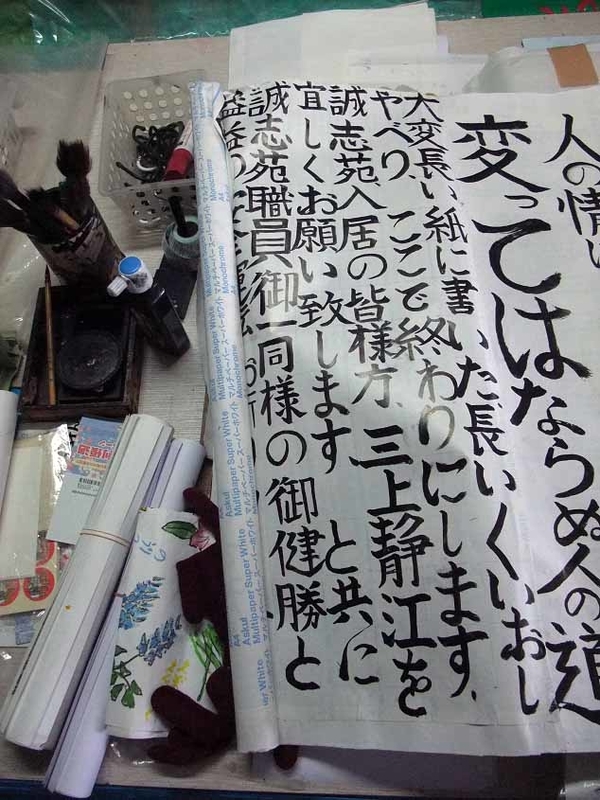 人の情
変ってはならぬ人の道
大変長い紙に書いた長いくいおし
やべり、ここで終わりにします、
誠志苑入居の皆様方 三上静江を
宜しくお願い致します と共に
誠志苑職員御一同様の御健勝と
益益の
Askul Multipaper Super White マルチペーパー スーパーホワイト Monochrome A4